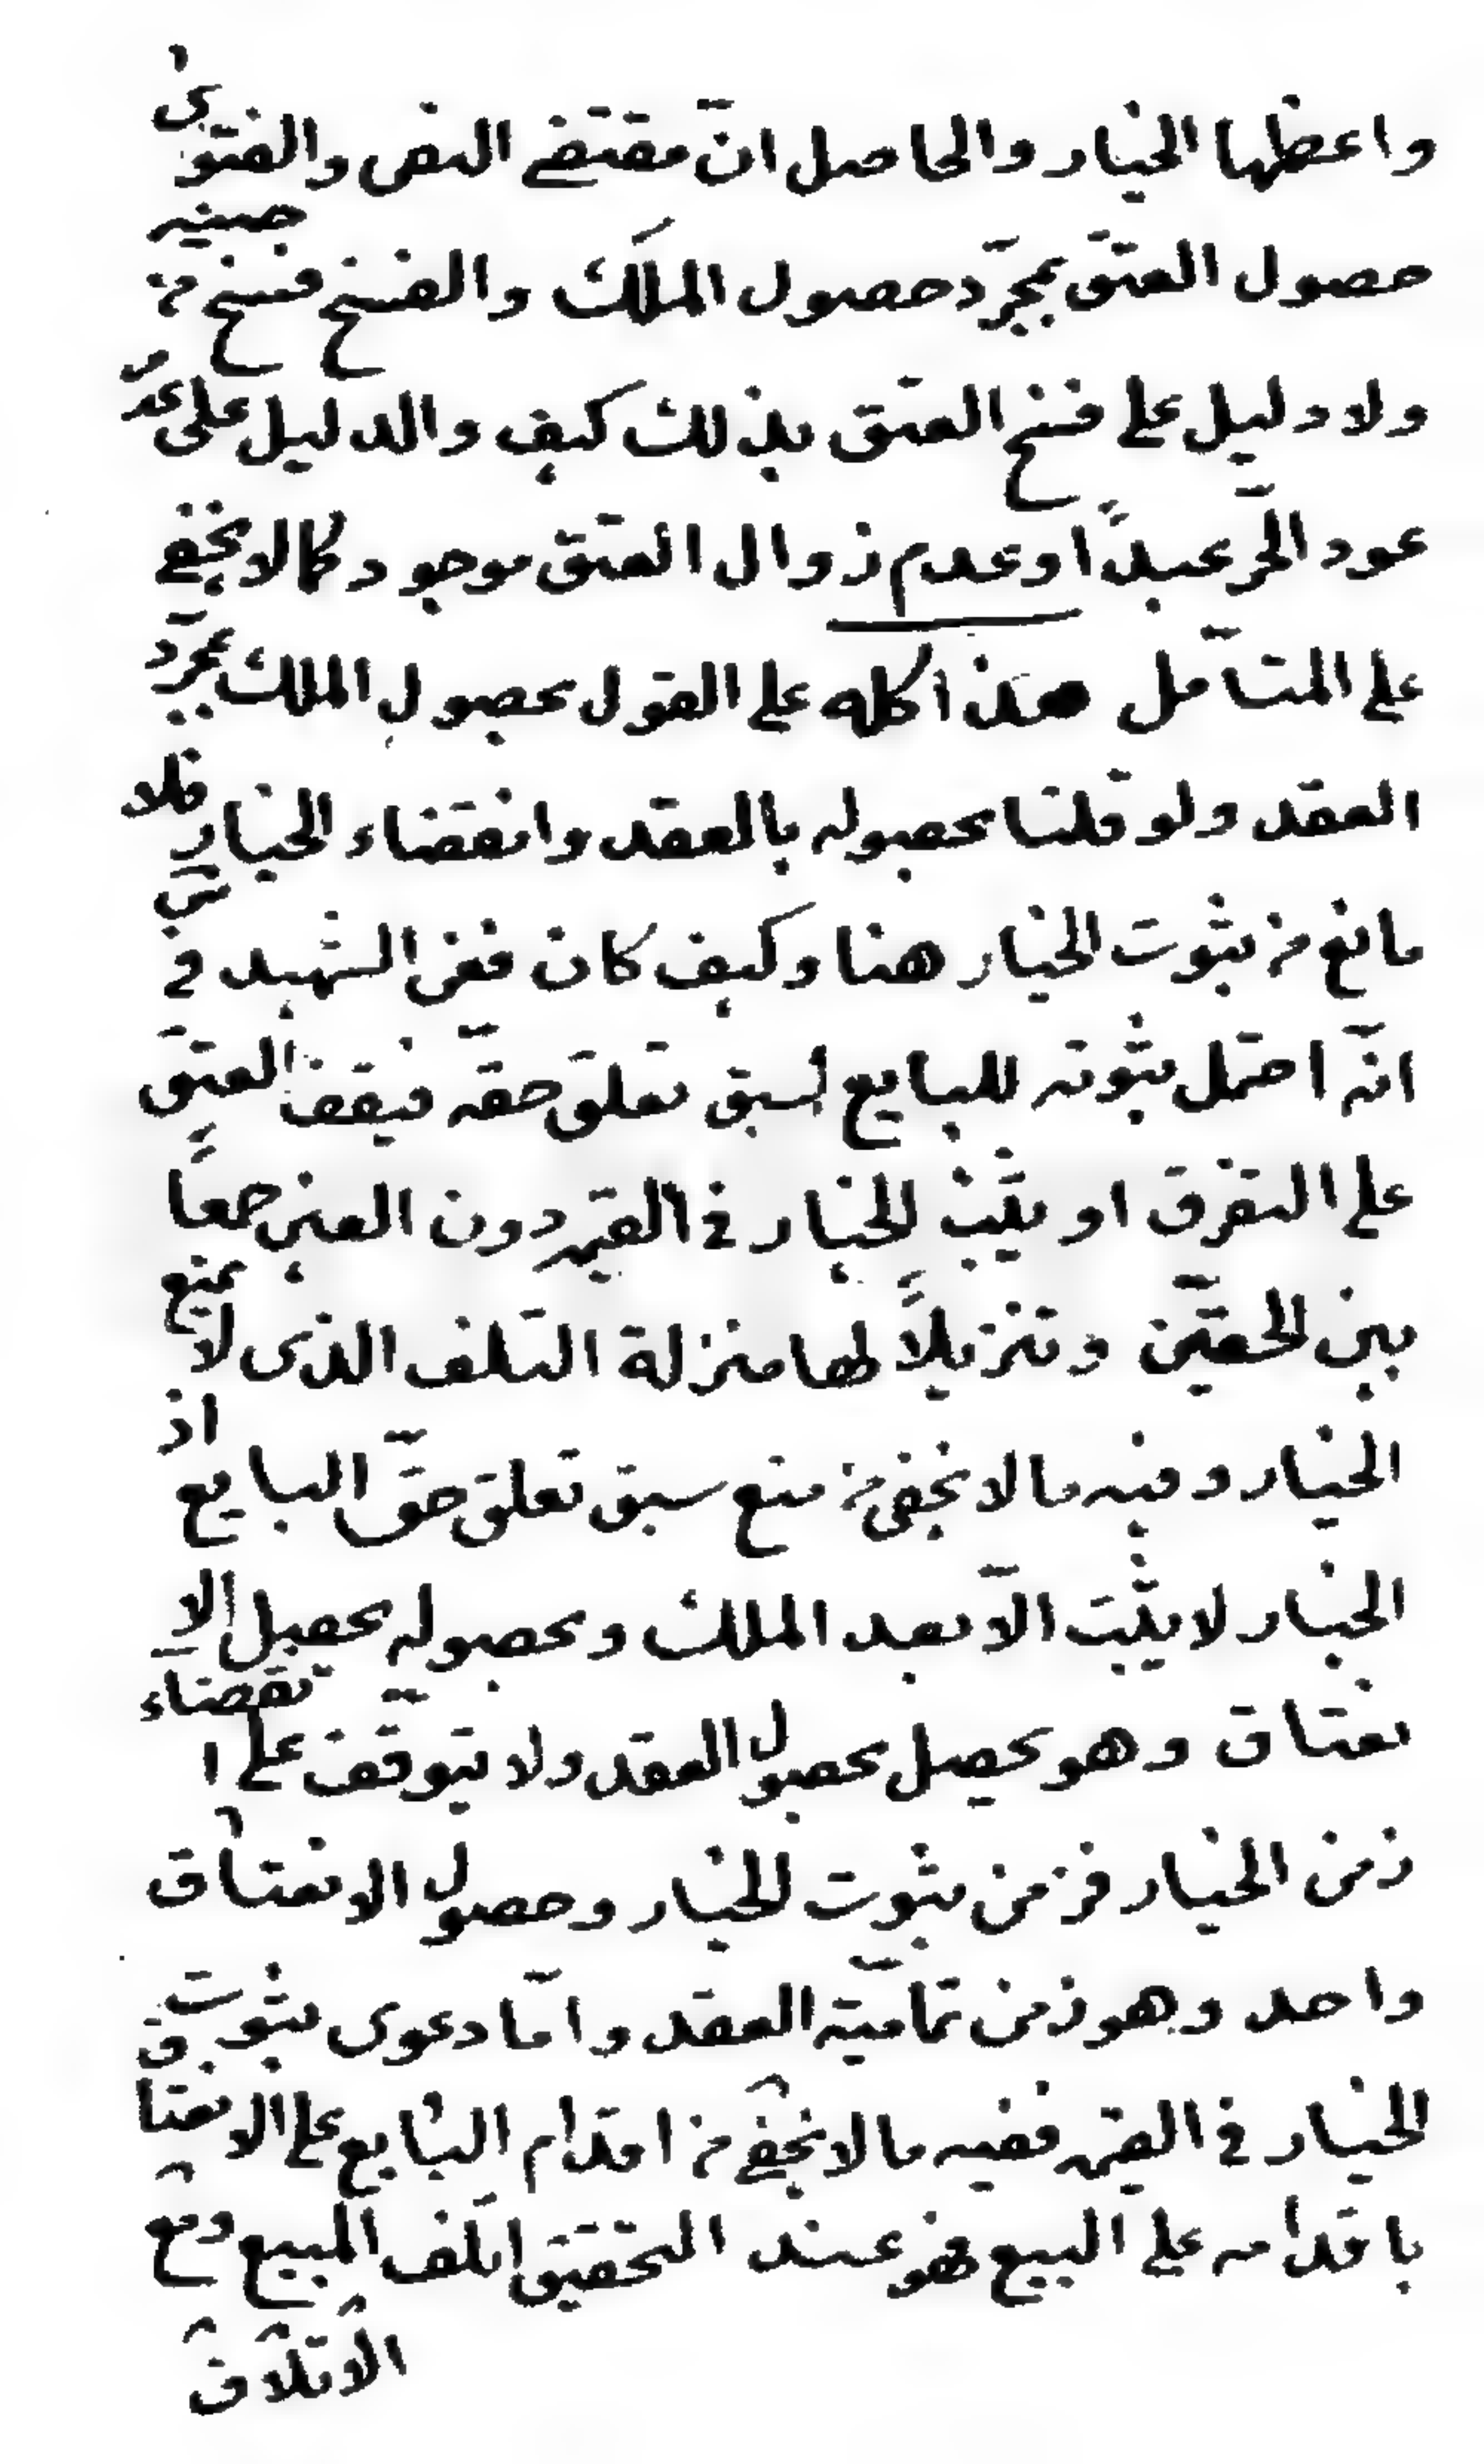 واعظها الخيار والحاصل انّ مقتضى النص والفتوى
حصول العتق بمجرّد حصول الملك والفسخ فسخ من حينه
ولا دليل على فسخ العتق بذلك كيف والدليل على عدم
عود الحرّ عبداً او عدم زوال العتق موجود كما لا يخفى
على المتأمل هذا كله على القول بحصول الملك بمجرّد
العقد ولو قلنا بحصوله بالعقد وانقضاء الخيار فلا
مانع من ثبوت الخيار هنا وكيف كان فعن الشهيد في س
انّه احتمل ثبوته للبايع لسبق تعلق حقّه فيقف العتق
على التفرق او يثبت الخيار في القيمه دون العين جمعاً
بين الحقيّن وتنزيلاً لها منزلة التلف الذى لا يمنع
الخيار وفيه ما لا يخفى من منع سبق تعلق حقّ البايع اذ
الخيار لا يثبت الّا بعد الملك وبحصوله يحصل الا
نعتاق وهو يحصل بحصول العقد ولا يتوقّف على انقضاء
زمن الخيار فزمن ثبوت الخيار وحصول الانعتاق
واحد وهو زمن تماميّة العقد وامّا دعوى ثبوت
الخيار في القيمه ففيه ما لا يخفى من اقدام البايع على الانعتاق
باقدامه على البيع فهو عند التحقيق اتلف المبيع ومع
الاتلاف